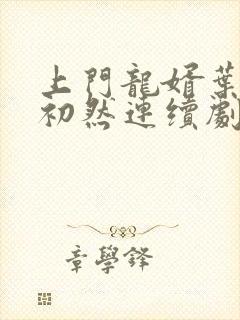 上門龍婿葉
初然連續劇
章學鋒